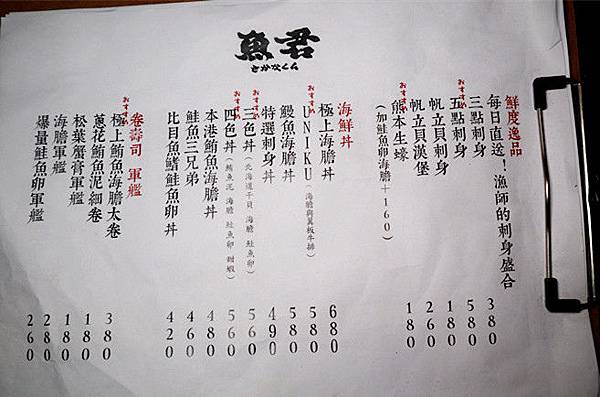 魚君
さかなくん
鮮度逸品
每日直送！漁師的刺身盛合
三點刺身 380
おすすめ 五點刺身 580
帆立貝刺身 180
帆立貝漢堡 260
おすすめ 熊本生蠔 180
(加鮭魚卵海膽+160)
海鮮丼
極上海膽丼 680
おすすめ UNIKU(海膽與翼板牛排) 580
鰻魚海膽丼 580
特選刺身丼 490
おすすめ 三色丼(北海道干貝 海膽 鮭魚卵) 560
おすすめ 四色丼(鮪魚泥 海膽 鮭魚卵 甜蝦) 560
本港鮪魚海膽丼 480
鮭魚三兄弟 460
比目魚鰭鮭魚卵丼 420
卷壽司 軍艦
おすすめ 極上鮪魚海膽太卷 380
蔥花鮪魚泥細卷 180
松葉蟹膏軍艦 180
海膽軍艦 280
爆量鮭魚卵軍艦 260